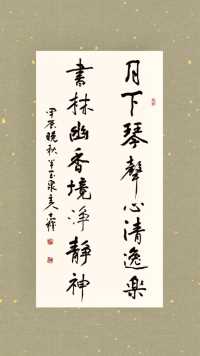 月下琴聲心清逸樂
書林幽香境淨靜神
甲辰晚秋